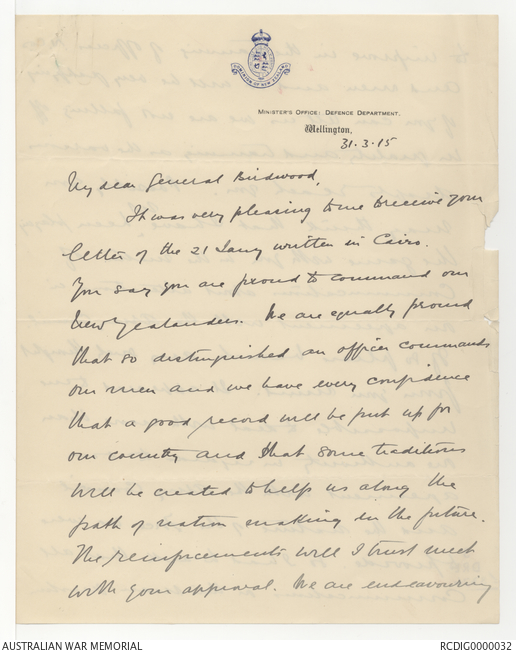 DOMINION OF NEW ZEALAND
MINISTER'S OFFICE: DEFENCE DEPARTMENT.
Wellington,
31.3.15
My dear General Birdwood,
It was very pleasing to me to receive your
letter of the 21 Jany written in Cairo.
You say you are proud to command our
New Zealanders. We are equally proud
that so distinguished an officer commands
our men and we have every confidence
that a good record will be put up for
our country and that some traditions
will be created to help us along the
path of nation making in the future.
The reinforcements will I trust meet
with your approval. We are endeavouring
AUSTRALIAN WAR MEMORIAL
RCDIG0000032